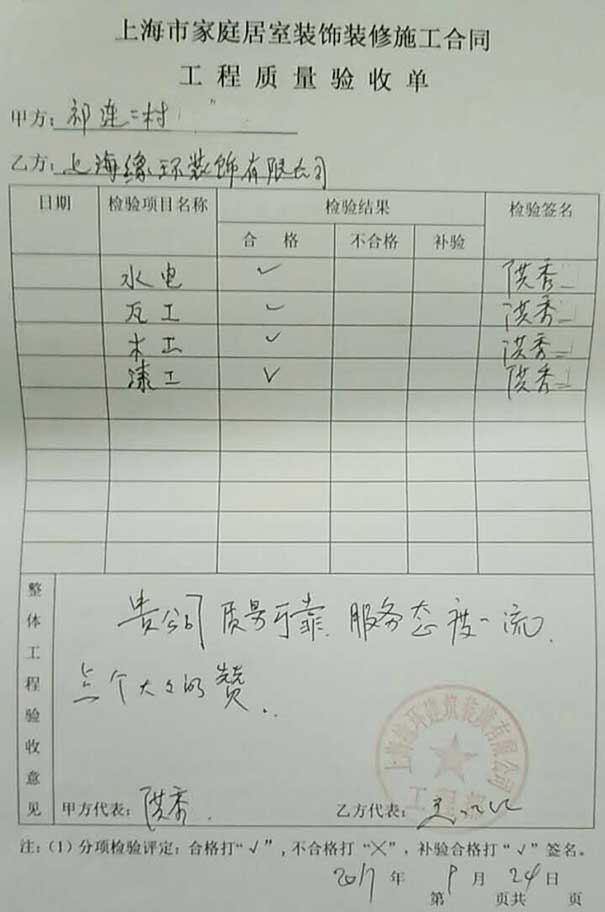 上海市家庭居室装饰装修施工合同
工程质量验收单
甲方：祁连二村
乙方：上海缘环装饰有限公司
日期 检验项目名称 检验结果 检验签名
合格 不合格 补验
水电 ✓ 洪秀
瓦工 ✓ 洪秀
木工 ✓ 洪秀
漆工 ✓ 洪秀
整体工程验收意见
贵公司质量可靠.服务态度一流.
点个大大的赞..
上海 环建筑装潢有限公司
甲方代表：洪秀. 乙方代表：
注：(1)分项检验评定：合格打“√”,不合格打“╳”,补验合格打“√”签名。
2017年9月24日
第 页共 页